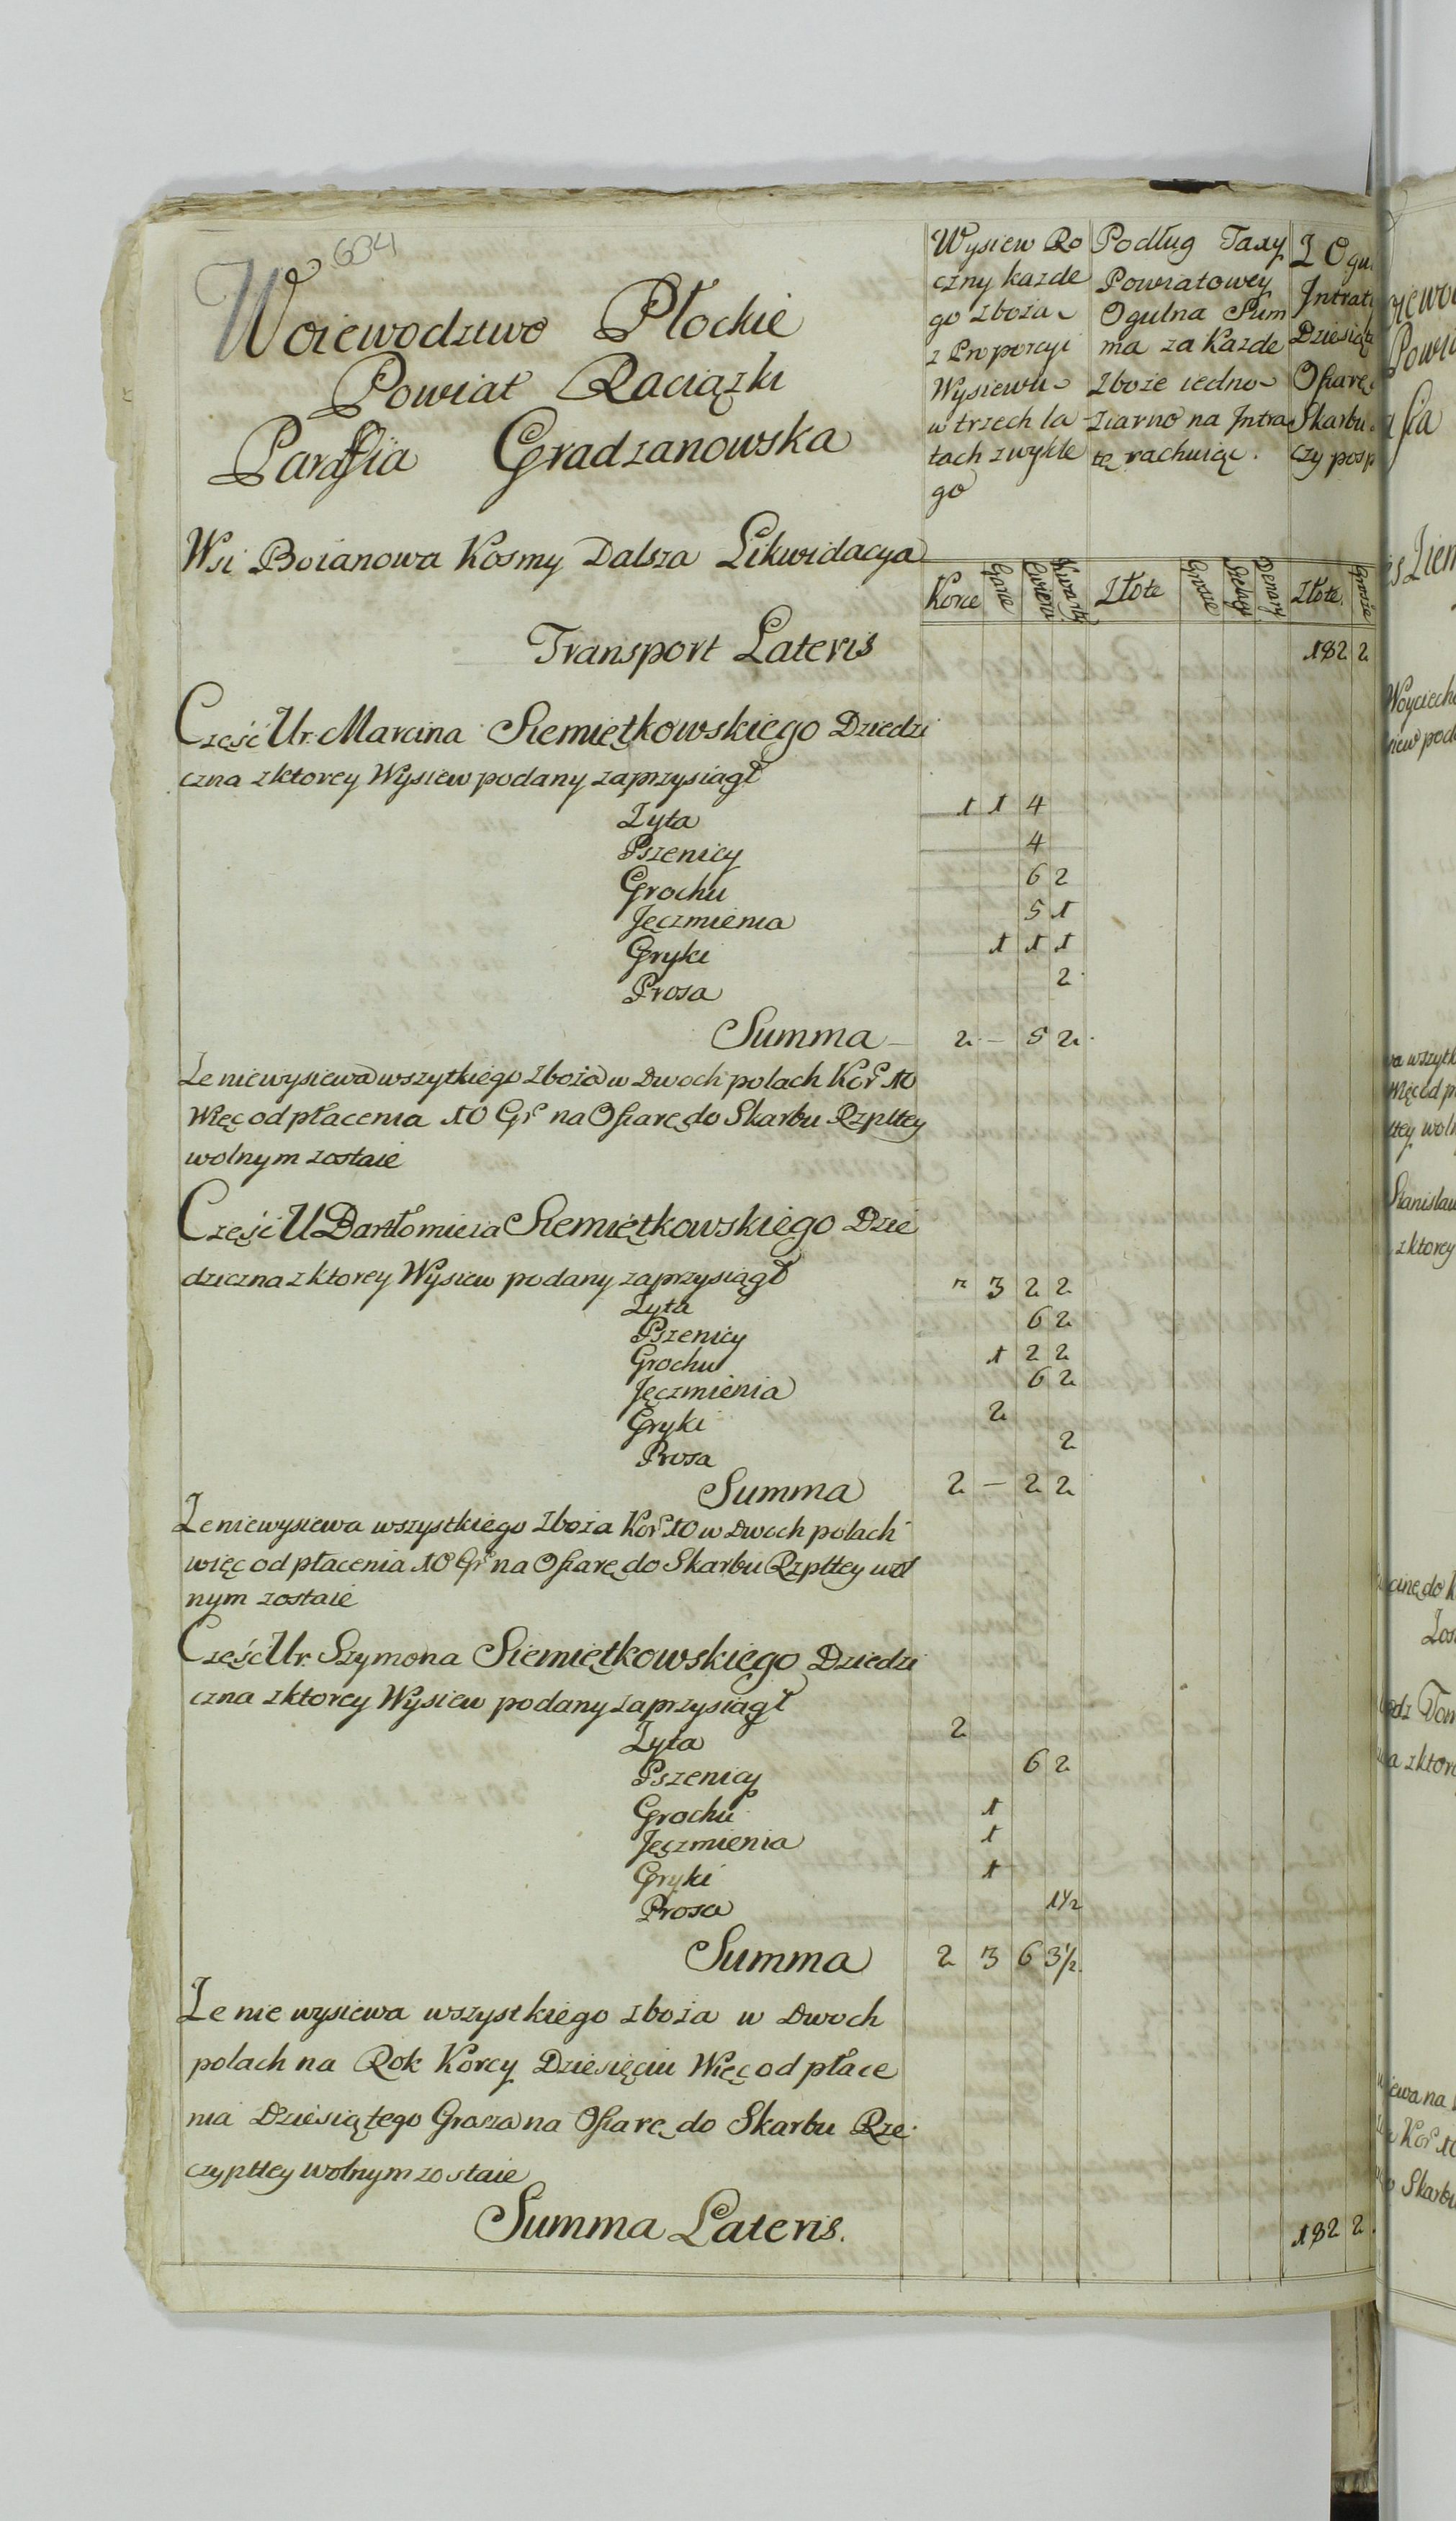 634
Woiewodztwo Płockie
Powiat Raciązki
Parafia Gradzanowska
Wysiew Ro
czny kazde
go zboza
z Proporcyi
Wysiewu
w trzech la
tach zwykłe
go
Podług Taxy
Powiatowey
Ogulna Sum
ma za Kazde
Zboze iedno
ziarno na Intra
tę rachuiąc.
Z Ogu
Intrat
Dziesiąt
Ofiarę
Skarbu
czy posp
Wsi Boianowa Kosmy Dalsza Likwidacya
Korce Garce Cwierci Kwarty Złote Grosze Szelągi Denary Złote Grosze
Transport Lateris 182 2
Część Ur. Marcina Siemiętkowskiego Dziedzi
czna z ktorey Wysiew podany zaprzysiągł
Zyta 1 1 4
Pszenicy 4
Grochu 6 2
Jęczmienia 5 1
Gryki 1 1 1
Prosa 2
Summa 2 – 5 2
Ze niewysiewa wszytkiego Zboza w Dwoch polach Kor 10
Więc od płacenia 10 Gr na Ofiarę do Skarbu Rzpltey
wolnym zostaie
Część U Bartłomieia Siemiętkowskiego Dzie
dziczna z ktorey Wysiew podany zaprzysiągł
Zyta 3 2 2
Pszenicy 6 2
Grochu 1 2 2
Jęczmienia 6 2
Gryki 2
Prosa 2
Summa 2 – 2 2
Ze niewysiewa wszystkiego Zboza Kor 10 w Dwoch polach
więc od płacenia 10 Gr na Ofiarę do Skarbu Rzpltey wol
nym zostaie
Część Ur. Szymona Siemiętkowskiego Dziedzi
czna z ktorey Wysiew podany zaprzysiągł
Zyta 2
Pszenicy 6 2
Grochu 1
Jęczmienia 1
Gryki 1
Prosa 1 1/2
Summa 2 3 6 3 1/2
Ze nie wysiewa wszystkiego zboza w Dwoch
polach na Rok Korcy Dziesięciu Więc od płace
nia Dziesiątego Grosza na Ofiarę do Skarbu Rze
czypltey wolnym zostaie
Summa Lateris. 182 2